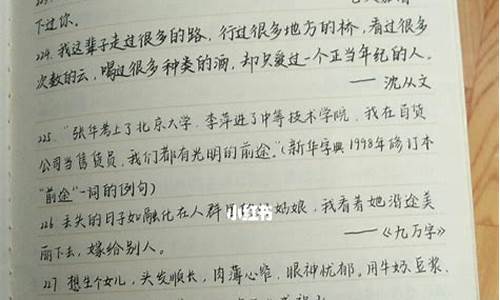 下过你。
224. 我这辈子走过很多的路，行过很多地方的桥，看过很多
次数的云，喝过很多种类的酒，却只爱过一个正当年纪的人。
—— 沈从文
225. "张华考上了北京大学，李萍进了中等技术学院，我在百货
公司当售货员，我们都有光明的前途。"（新华字典1998年修订本
"前途"一词的例句）
226 丢失的日子如融化在人群里的姑娘，我看着她沿途美
丽下去，嫁给别人。
——《九万字》
227 想生个女儿，头发顺长，肉薄心缩，眼神忧郁。用牛奶豆浆、
小红书